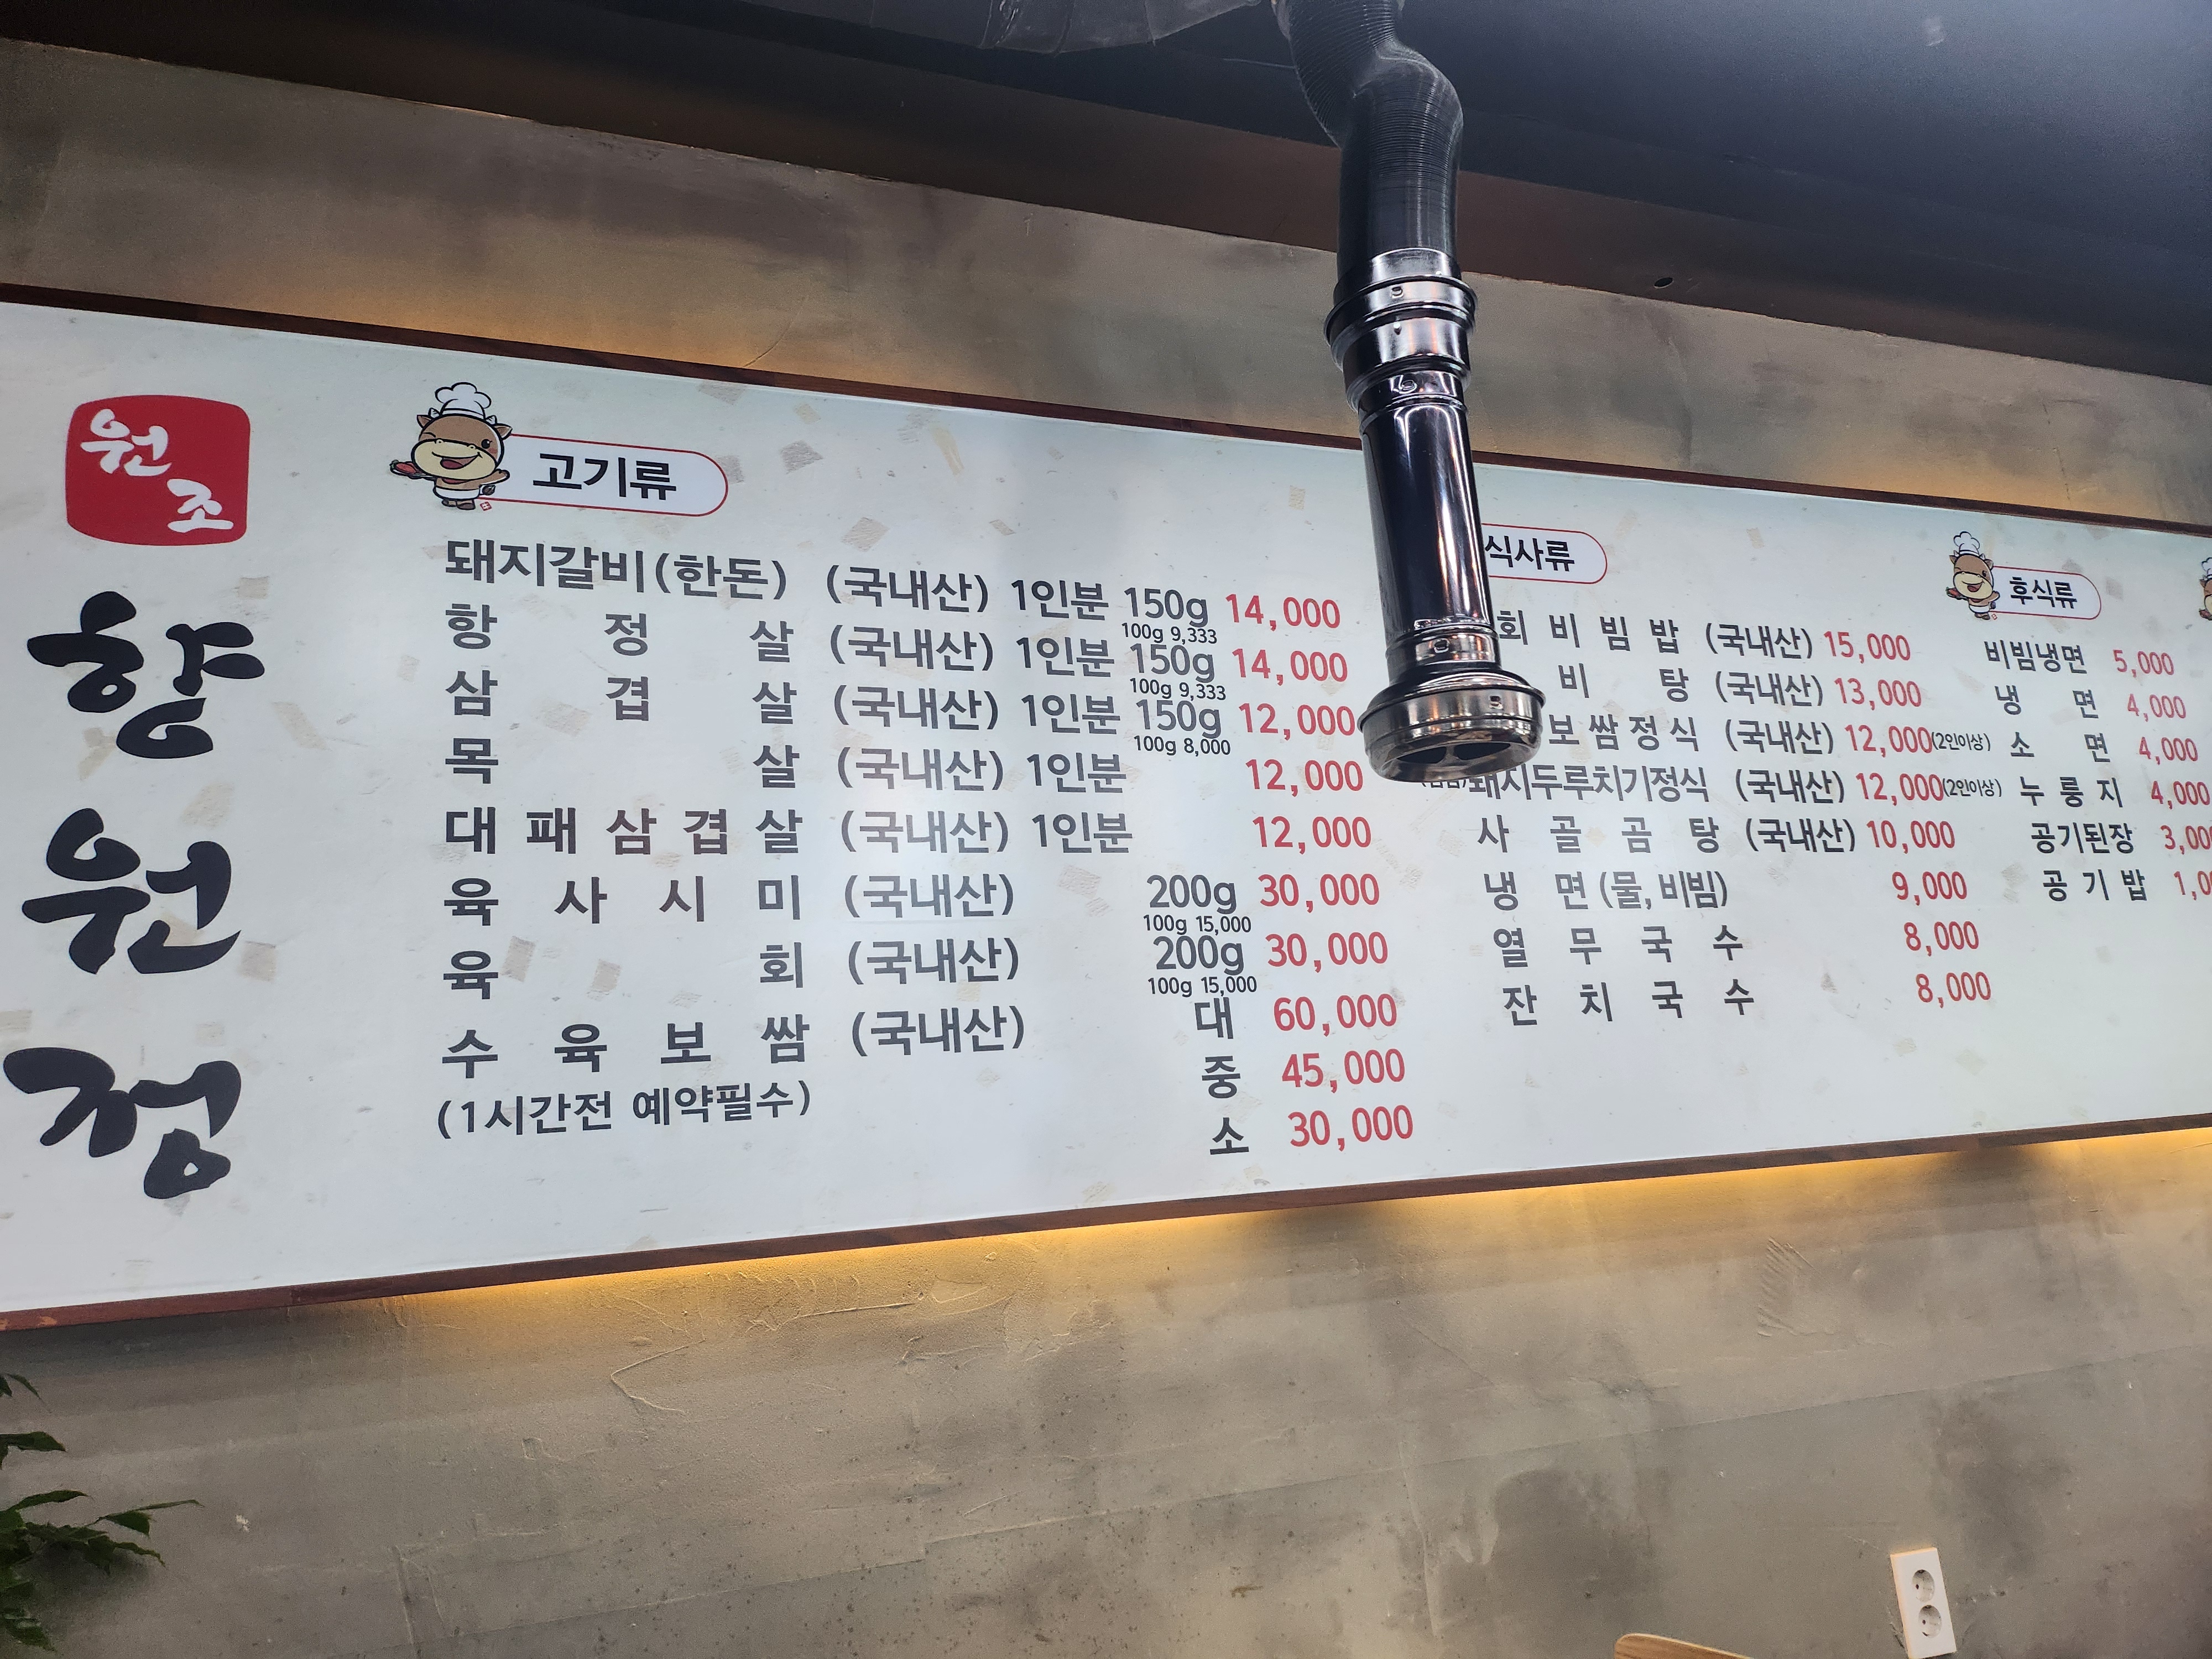 원조
향원정
고기류
돼지갈비(한돈) (국내산) 1인분 150g 14,000
100g 9,333
항정살 (국내산) 1인분 150g 14,000
100g 9,333
삼겹살 (국내산) 1인분 150g 12,000
100g 8,000
목살 (국내산) 1인분 12,000
대패삼겹살 (국내산) 1인분 12,000
육사시미 (국내산) 200g 30,000
100g 15,000
육회 (국내산) 200g 30,000
100g 15,000
수육보쌈 (국내산) 대 60,000
(1시간전 예약필수) 중 45,000
소 30,000
식사류
회비빔밥 (국내산) 15,000
비탕 (국내산) 13,000
보쌈정식 (국내산) 12,000(2인이상)
돼지두루치기정식 (국내산) 12,000(2인이상)
사골곰탕 (국내산) 10,000
냉면(물,비빔) 9,000
열무국수 8,000
잔치국수 8,000
후식류
비빔냉면 5,000
냉면 4,000
소면 4,000
누룽지 4,000
공기된장
공기밥